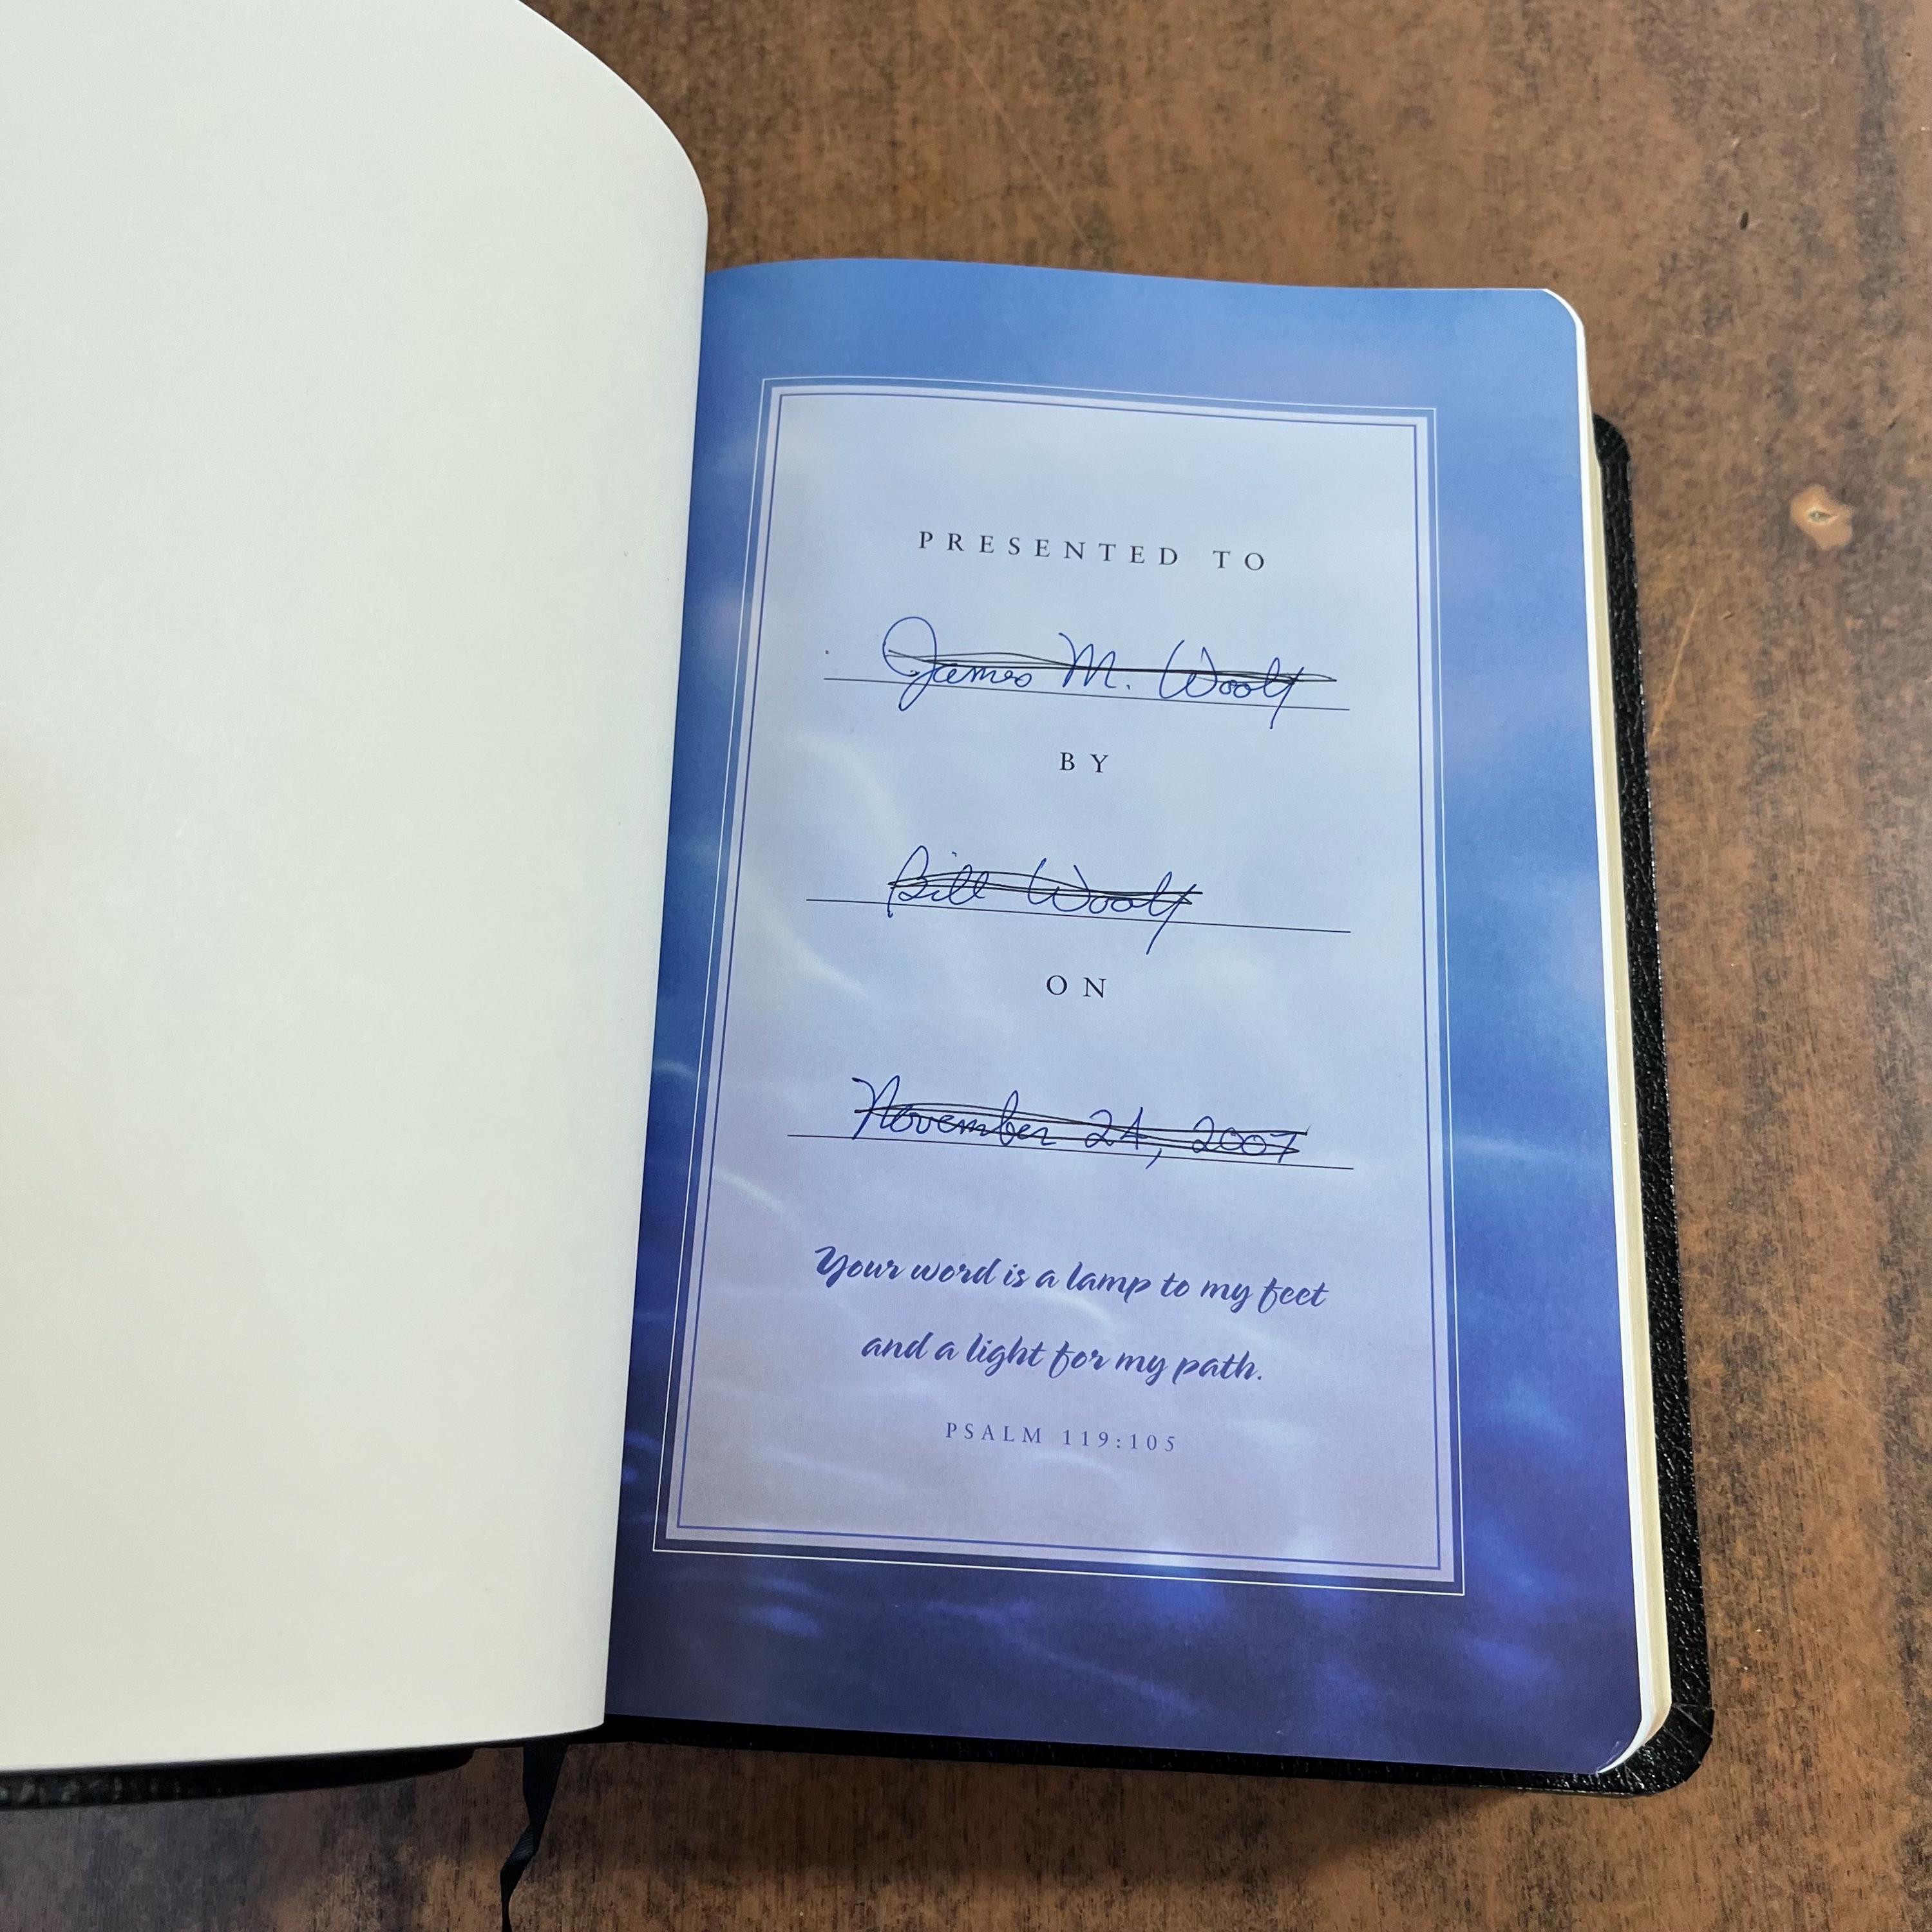 PRESENTED TO
James M. Woolf
BY
Bill Woolf
ON
November 24, 2007
Your word is a lamp to my feet
and a light for my path.
PSALM 119:105